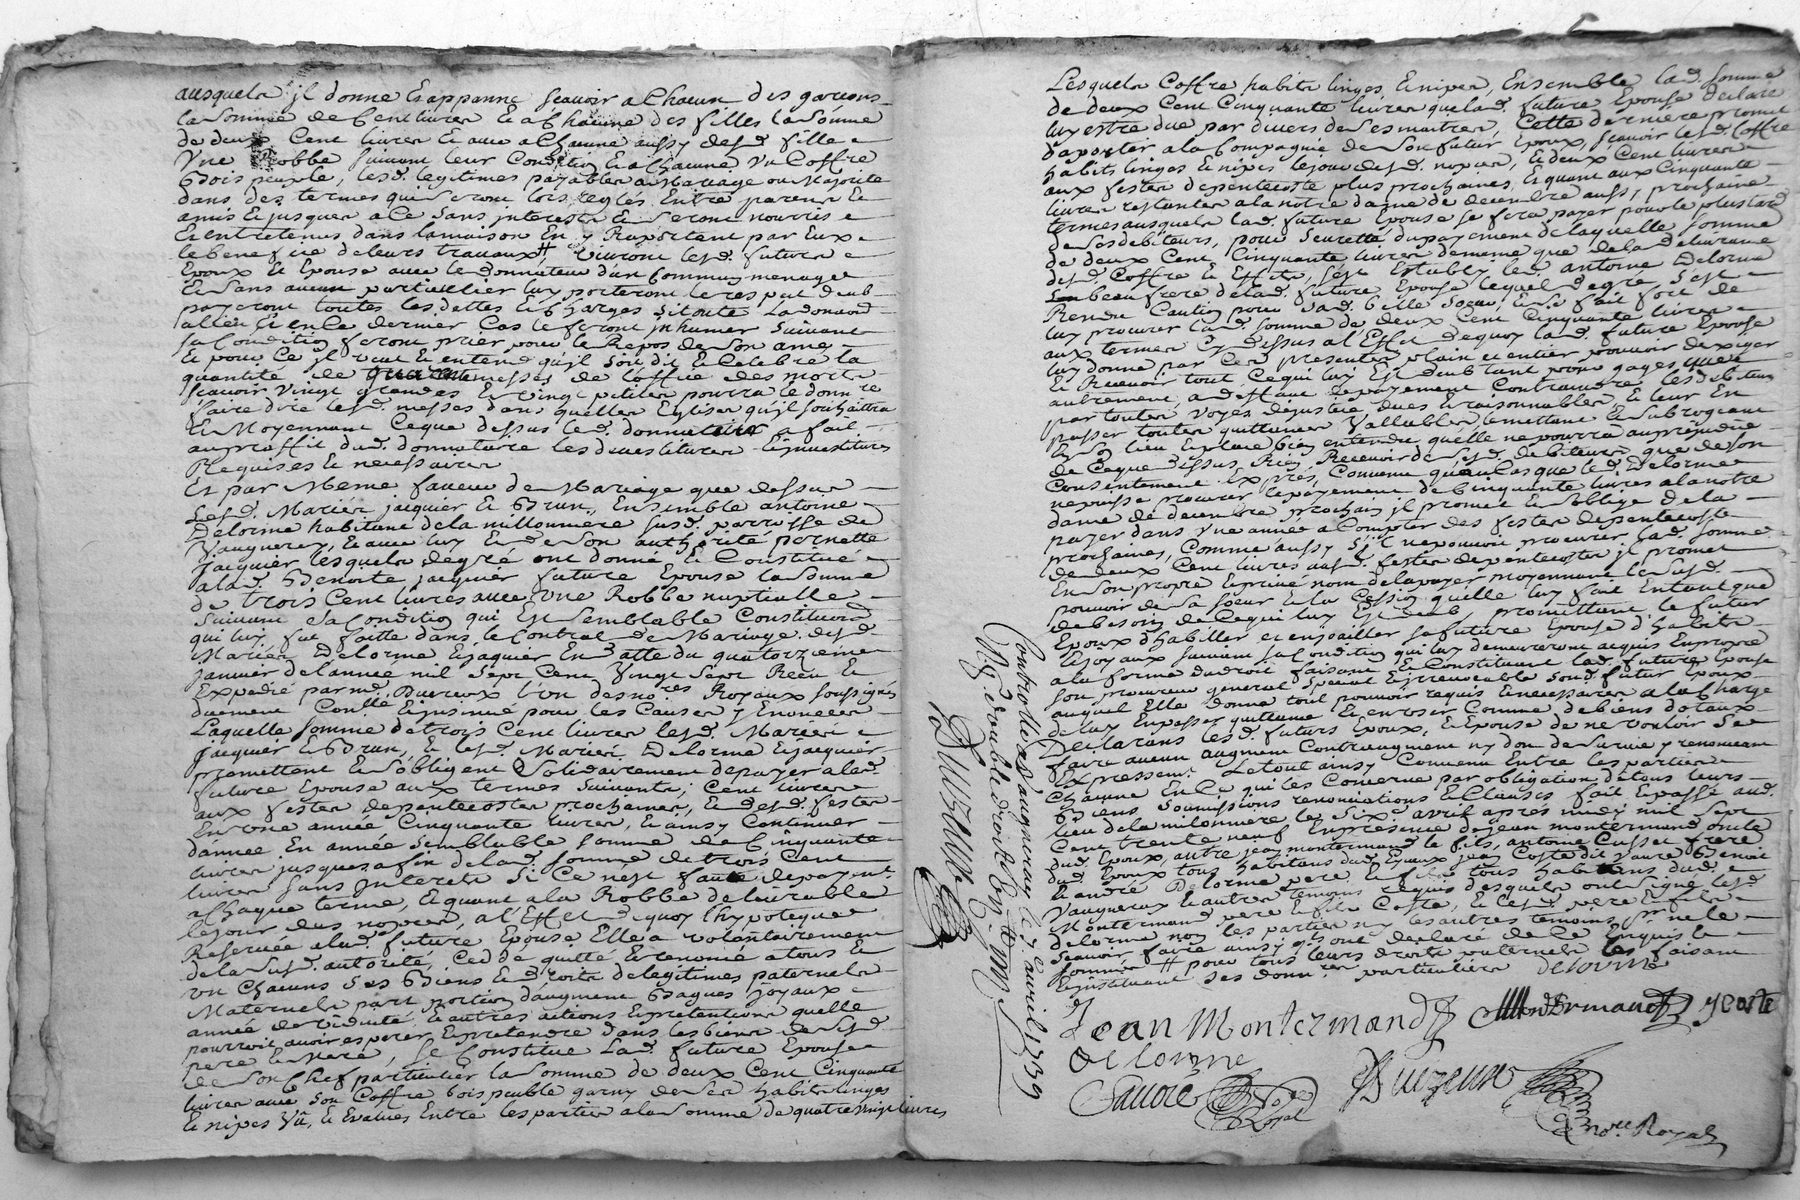 ausquels jl donne Et appanne scavoir a Chacun des garcons
la somme de Cent livres Et a Chacune des filles la somme
de deux Cent livres Et avec a Chacune aussy desd. fille
Une Robbe suivant leur Condition Et a Chacune Un Coffre
Bois peuple, lesd. legitimes payables a Mariage ou Majorité
dans des termes qui seront lors reglés Entre parens Et
amis Et jusques a Ce sans interests Et seront nourris
Et entretenus dans la maison En y Raportant par Eux
le benefice de leurs travaux # Vivront lesd. futurs
Epoux Et Epouse avec le donnateur d'un Commun menage
Et sans aucun particullier luy porteront le respect deub
payeront toutes les dettes Et Charges
En Ce dernier Cas le feront jnhumer suivant
sa Condition feront prier pour le Repos de son ame
Et pour Ce jl veut Et entend qu'il soit dit Et Celebré la
quantité de quarante messes de l'office des morts
scavoir vingt grandes Et vingt petites pourra le donn.re
faire dire lesd. messes dans quelles Eglises qu'jl souhaittra
Et Moyennant Ce que dessus led. donnateur a fait
au proffit dud. donnataire les devestitures Et jnvestitures
Requises Et necessaires
Et par Meme faveur de Mariage que dessus
Lesd. Mariés jacquier Et Brun, Ensemble antoine
Delorme habitant de la millonniere susd. parroisse de
Vaugneray, Et avec luy Et de son authorité pernette
jacquier lesquels de gré ont donné Et Constitué
a lad. Benoite jacquier future Epouse la somme
de trois Cent livres avec Une Robbe nuptialle
suivant sa Condition qui Est semblable Constitution
qui luy fut faitte dans le Contrat de Mariage desd.
Mariés Delorme Et jaquier En datte du quatorzieme
janvier de l'année mil sept Cent Vingt sept Receu Et
Expedié par me. l'un des no.res Royaux soussignés
duement Con.llé Et jnsinué pour les Causes y Enoncées
Laquelle somme de trois Cent livres lesd. Mariés
jacquier Et Brun, Et lesd. Mariés Delorme Et jacquier
promettent Et s'obligent solidairement de payer a lad.
future Epouse aux termes suivants; Cent livres
aux festes de pentecostes prochaines, Et desd. festes
En Une année Cinquante livres, Et ainsy Continuer
d'année En année semblable somme de Cinquante
livres jusques a fin de lad. somme de trois Cent
livres sans jnterets si Ce n'est faute de payem.t
a Chaque terme, Et quant a la Robbe delivrable
le jour des nopces, a l'Effet de quoy l'hypoteque
Reservée a lad. future Epouse Elle a volontairement
de la susd. autorité Cedé quitté Et renoncé a tous Et
Un Chacuns ses Biens Et droits de legitimes paternels
Maternels part portion d'augment Bagues Et joyaux
année de viduité Et autres actions Et pretentions quelle
pourroit avoir esperer Et pretendre dans les biens desd.
pere Et mere, se Constitue lad. future Epouse
de son Chef particulier la somme de deux Cent Cinquante
livres avec son Coffre bois peuble garny de ses habits linges
Et nipes Vû, Et Evalués Entre les parties a la somme de quatre vingt livres
Lesquels Coffre habits linges Et nipes, Ensemble lad. somme
de deux Cent Cinquante livres que lad. future Epouse declare
luy estre due par divers de ses maitres, Cette derniere promet
d'aporter a la Compagnie de son futur Epoux, scavoir lesd. Coffre
habits linges Et nipes le jour desd. nopces, Et deux Cent livres
aux festes de pentecoste plus prochaines, Et quant aux Cinquante
livres restantes a la notre dame de decembre aussy prochaine
termes ausquels lad. future Epouse se fera payer pour le plus tard
de ses debiteurs, pour seuretté du payement de laquelle somme
de deux Cent Cinquante livres de meme que de la delivrance
desd. Coffre Et Effets, s'est Estably led. antoine Delorme
beau frere de lad. future Epouse lequel de gré s'est
Rendu Caution pour sad. belle soeur, Et se fait fort de
luy procurer lad. somme de deux Cent Cinquante livres
aux termes Cy dessus a l'Effet de quoy lad. future Epouse
luy donne par Ces presentes plain et entier pouvoir d'exiger
Et Recevoir tout Ce qui luy Est deub tant pour gages que
autrement, a deffaut de payement Contraindre les debiteurs
par toutes voyes de justice dues Et raisonnables, Et leur En
passer toutes quittances Vallables, Et mettant Et subrogeant
En son lieu Et place bien entendu quelle ne pourra au prejudice
de Ce que dessus, Rien Recevoir de sesd. debiteurs que de son
Consentement Expres, Convenu qu'au Cas que led. Delorme
ne puisse procurer le payement de Cinquante livres a la notre
dame de decembre prochain jl promet Et s'oblige de la
payer dans Une année a Compter des festes de pentecoste
prochaines, Comme aussy s'jl ne pouvoit procurer lad. somme
de deux Cent livres ausd. festes de pentecostes jl promet
En son propre Et privé nom de la payer moyennant le susd.
pouvoir de sa soeur Et la Cession quelle luy fait En tant que
de besoin de Ce qui luy Est deub, promettant le futur
Epoux d'habiller et enjoailler sa future Epouse d'habits
Et joyaux suivant sa Condition qui luy demeureront acquis En propre
a la forme du droit faisant Et Constituant lad. future Epouse
son procureur general special Et jrrevocable sond. futur Epoux
auquel Elle donne tout pouvoir requis Et necessaires a la Charge
de luy En passer quittance Comme de biens dotaux
Declarans lesd. futurs Epoux, Et Epouse de ne vouloir se
faire aucun augment Contraugment ny don de survie y renoncant
Expressem.t Le tout ainsy Convenu Entre les parties
Chacune En Ce qui les Concerne par obligation de tous leurs
Biens soumissions renonciations Et Clauses fait Et passé aud.
lieu de la milonniere le six.e avril apres midy mil sept
Cent trente neuf En presence de jean montermand oncle
dud. Epoux, autre jean montermand le fils, antoine Cusset frere
dud. Epoux tous habitans dud. jean Coste dit Benoit
Et andré Delorme pere Et fils tous habitans dud.
Vaugneray Et autres temoins requis desquels ont signé lesd.
Montermand pere Et fils Coste, Et lesd. pere Et fils
delorme non les parties ny les autres temoins p.r ne le
scavoir faire ainsy qu'jls ont declaré de Ce Enquis Et
sommés # pour tous leurs droits paternels les faisant
Et jnstituant ses donn.res particuliers delorme
Jean Montermand Montermand jCoste
delorme
Savoie Duvernay
No.re Royal no.re Royal
Controllé a Vaugneray le 7e avril 1739